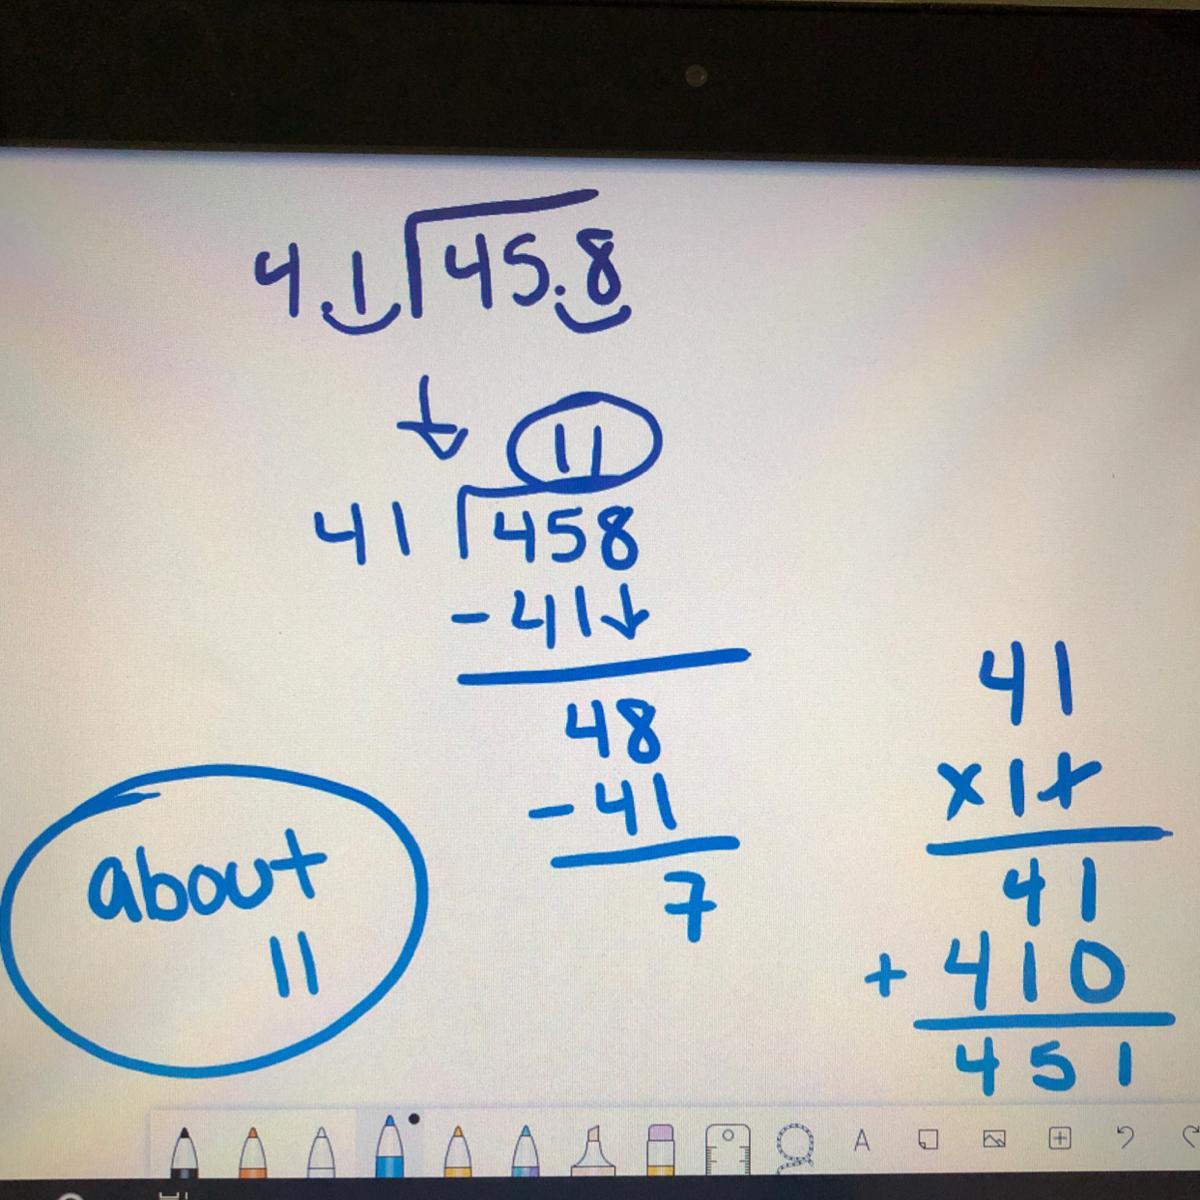 4.1 45.8
11
41 458
- 41
48
- 41
7
about
11
41
x 11
41
+ 410
451
A